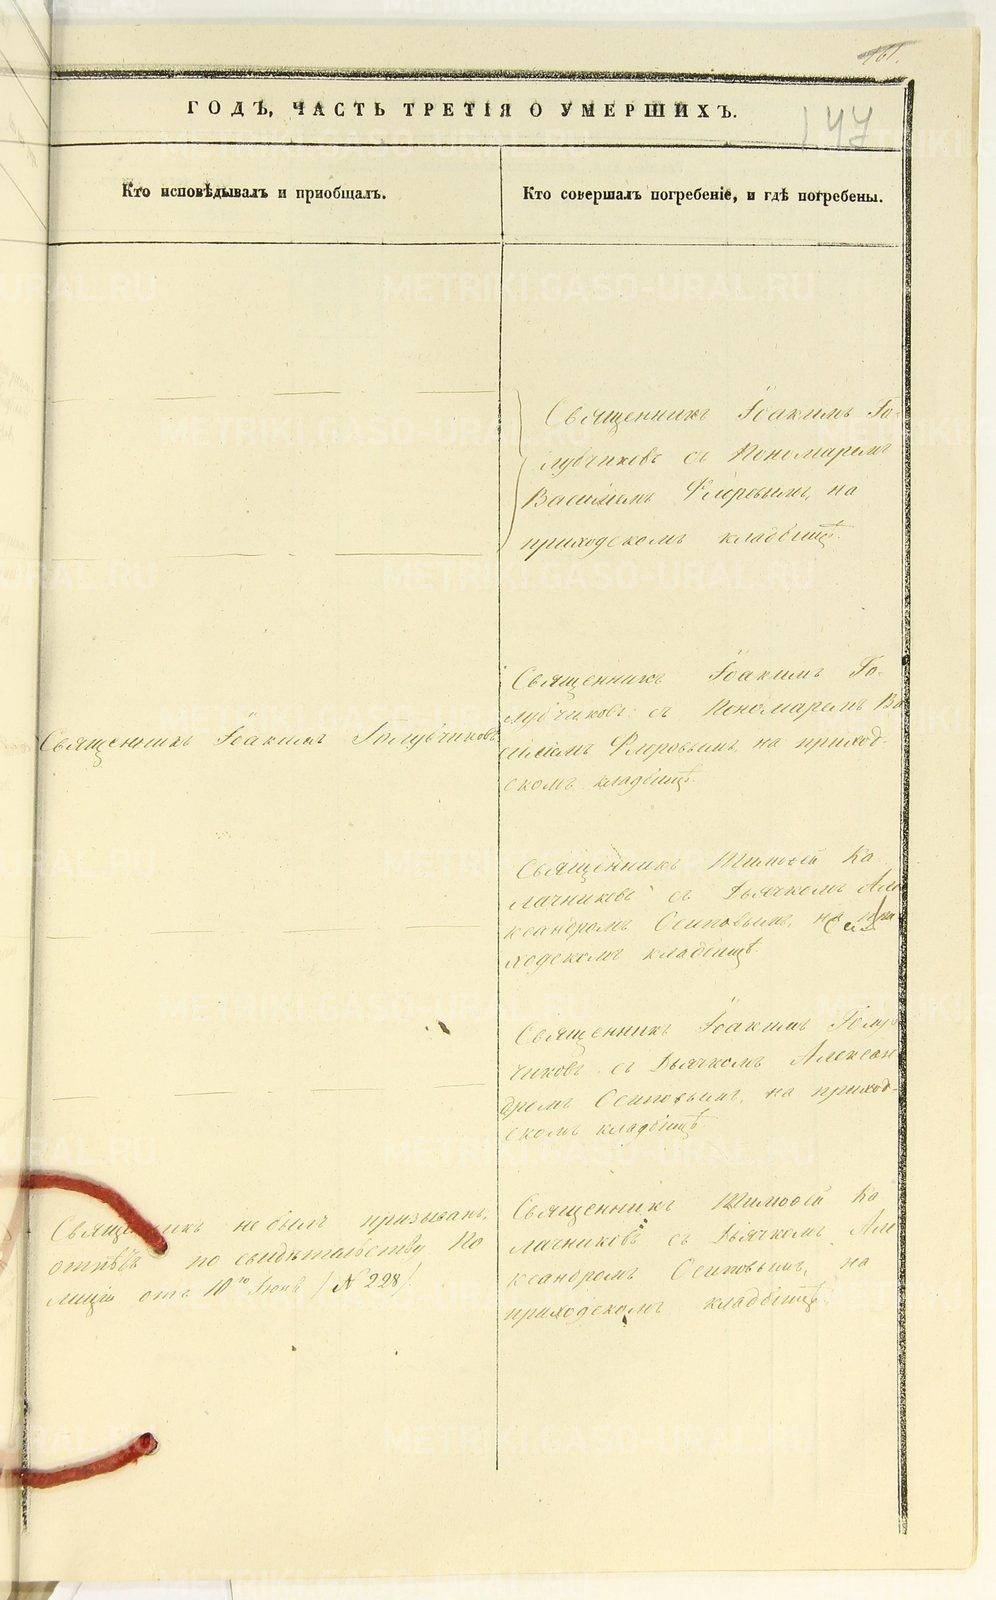 161.
ГОДЪ, ЧАСТЬ ТРЕТІЯ О УМЕРШИХЪ.
147
Кто исповѣдывалъ и пріобщалъ.
Кто совершалъ погребеніе, и гдѣ погребены.
Священникъ Іоакимъ Го-
лубчиковъ съ Пономаремъ
Василіемъ Флоровымъ, на
приходскомъ кладбищѣ.
Священникъ Іоакимъ Голубчиковъ
Священникъ Іоакимъ Го-
лубчиковъ съ Пономаремъ Ва
силіемъ Флоровымъ, на приход-
скомъ кладбищѣ.
Священникъ Тимоѳей Ка
лачниковъ съ Дьячкомъ Але
ксандромъ Осиповымъ, на при
ходскомъ кладбищѣ.
Священникъ Іоакимъ Голуб
чиковъ съ Дьячкомъ Алексан
дромъ Осиповымъ, на приход-
скомъ кладбищѣ
Священникъ не былъ призыванъ,
отпѣтъ по свидѣтельству По
лиціи отъ 10го Іюня (№ 228).
Священникъ Тимоѳей Ка
лачниковъ съ Дьячкомъ Але
ксандромъ Осиповымъ, на
приходскомъ кладбищѣ.
METRIKI.GASO-URAL.RU